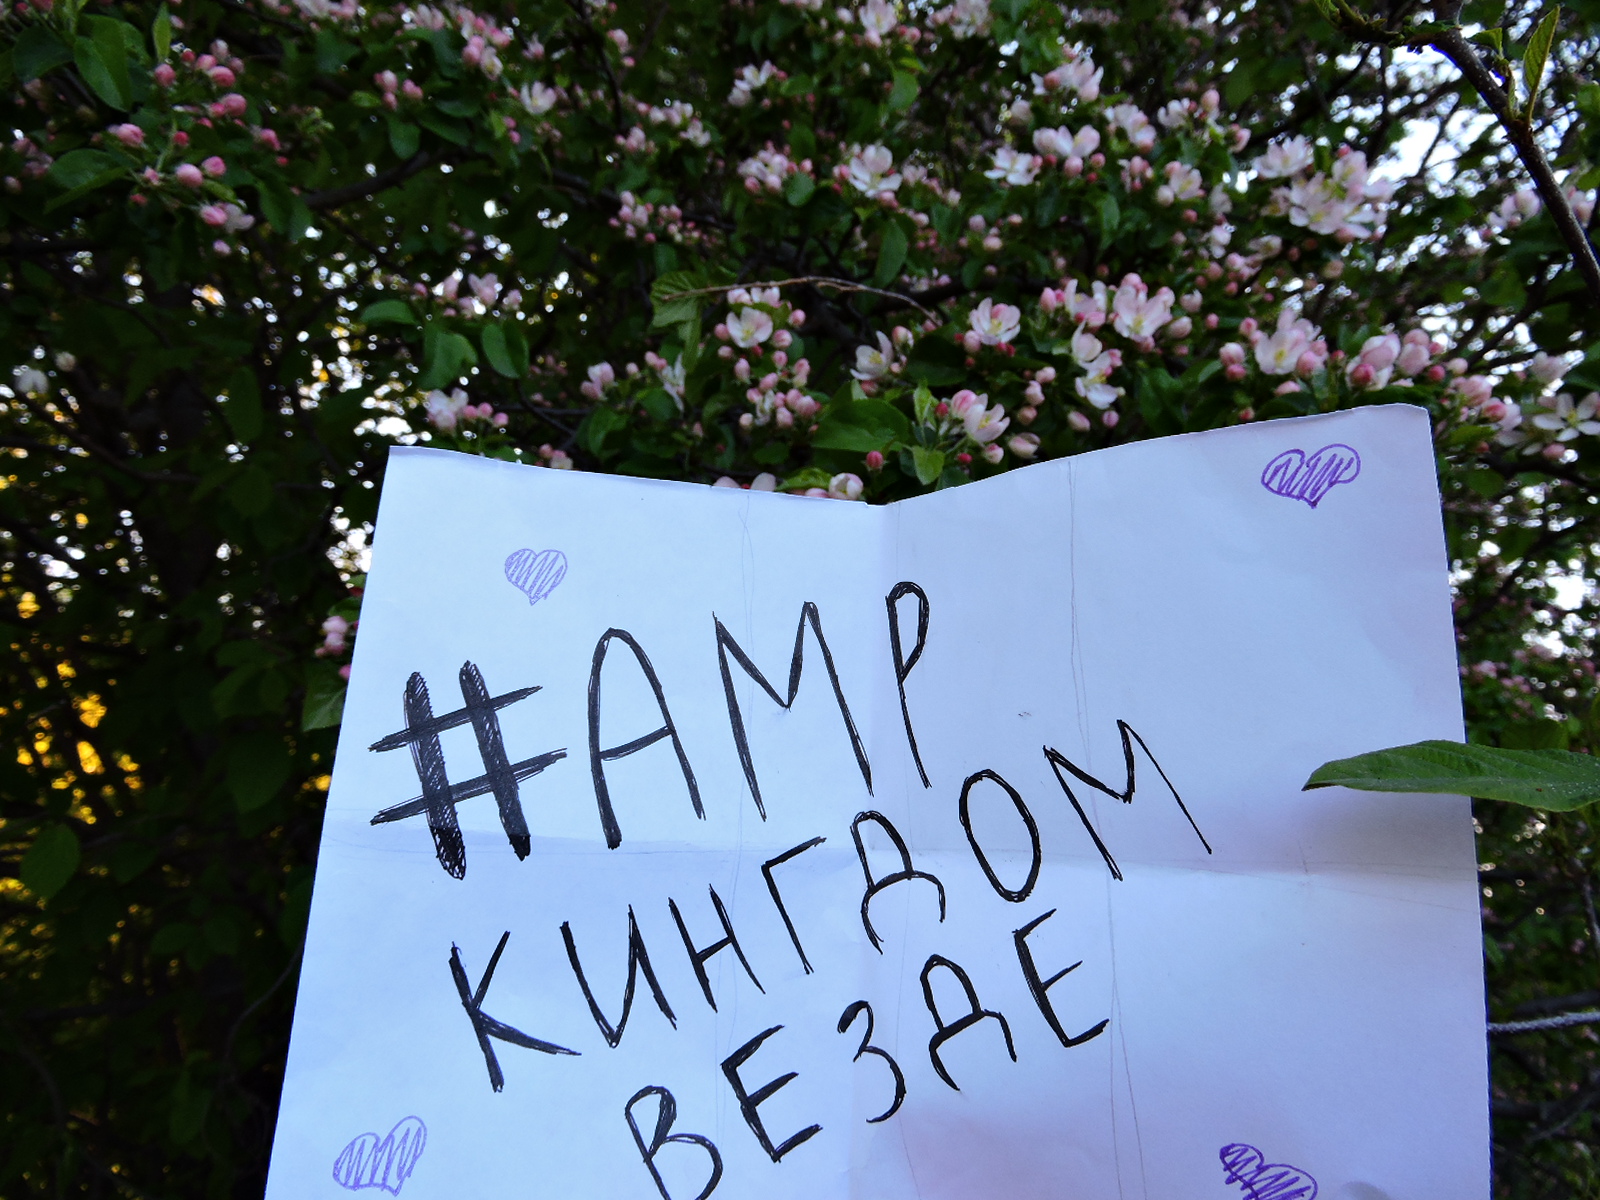 #АМР
КИНГДОМ
ВЕЗДЕ